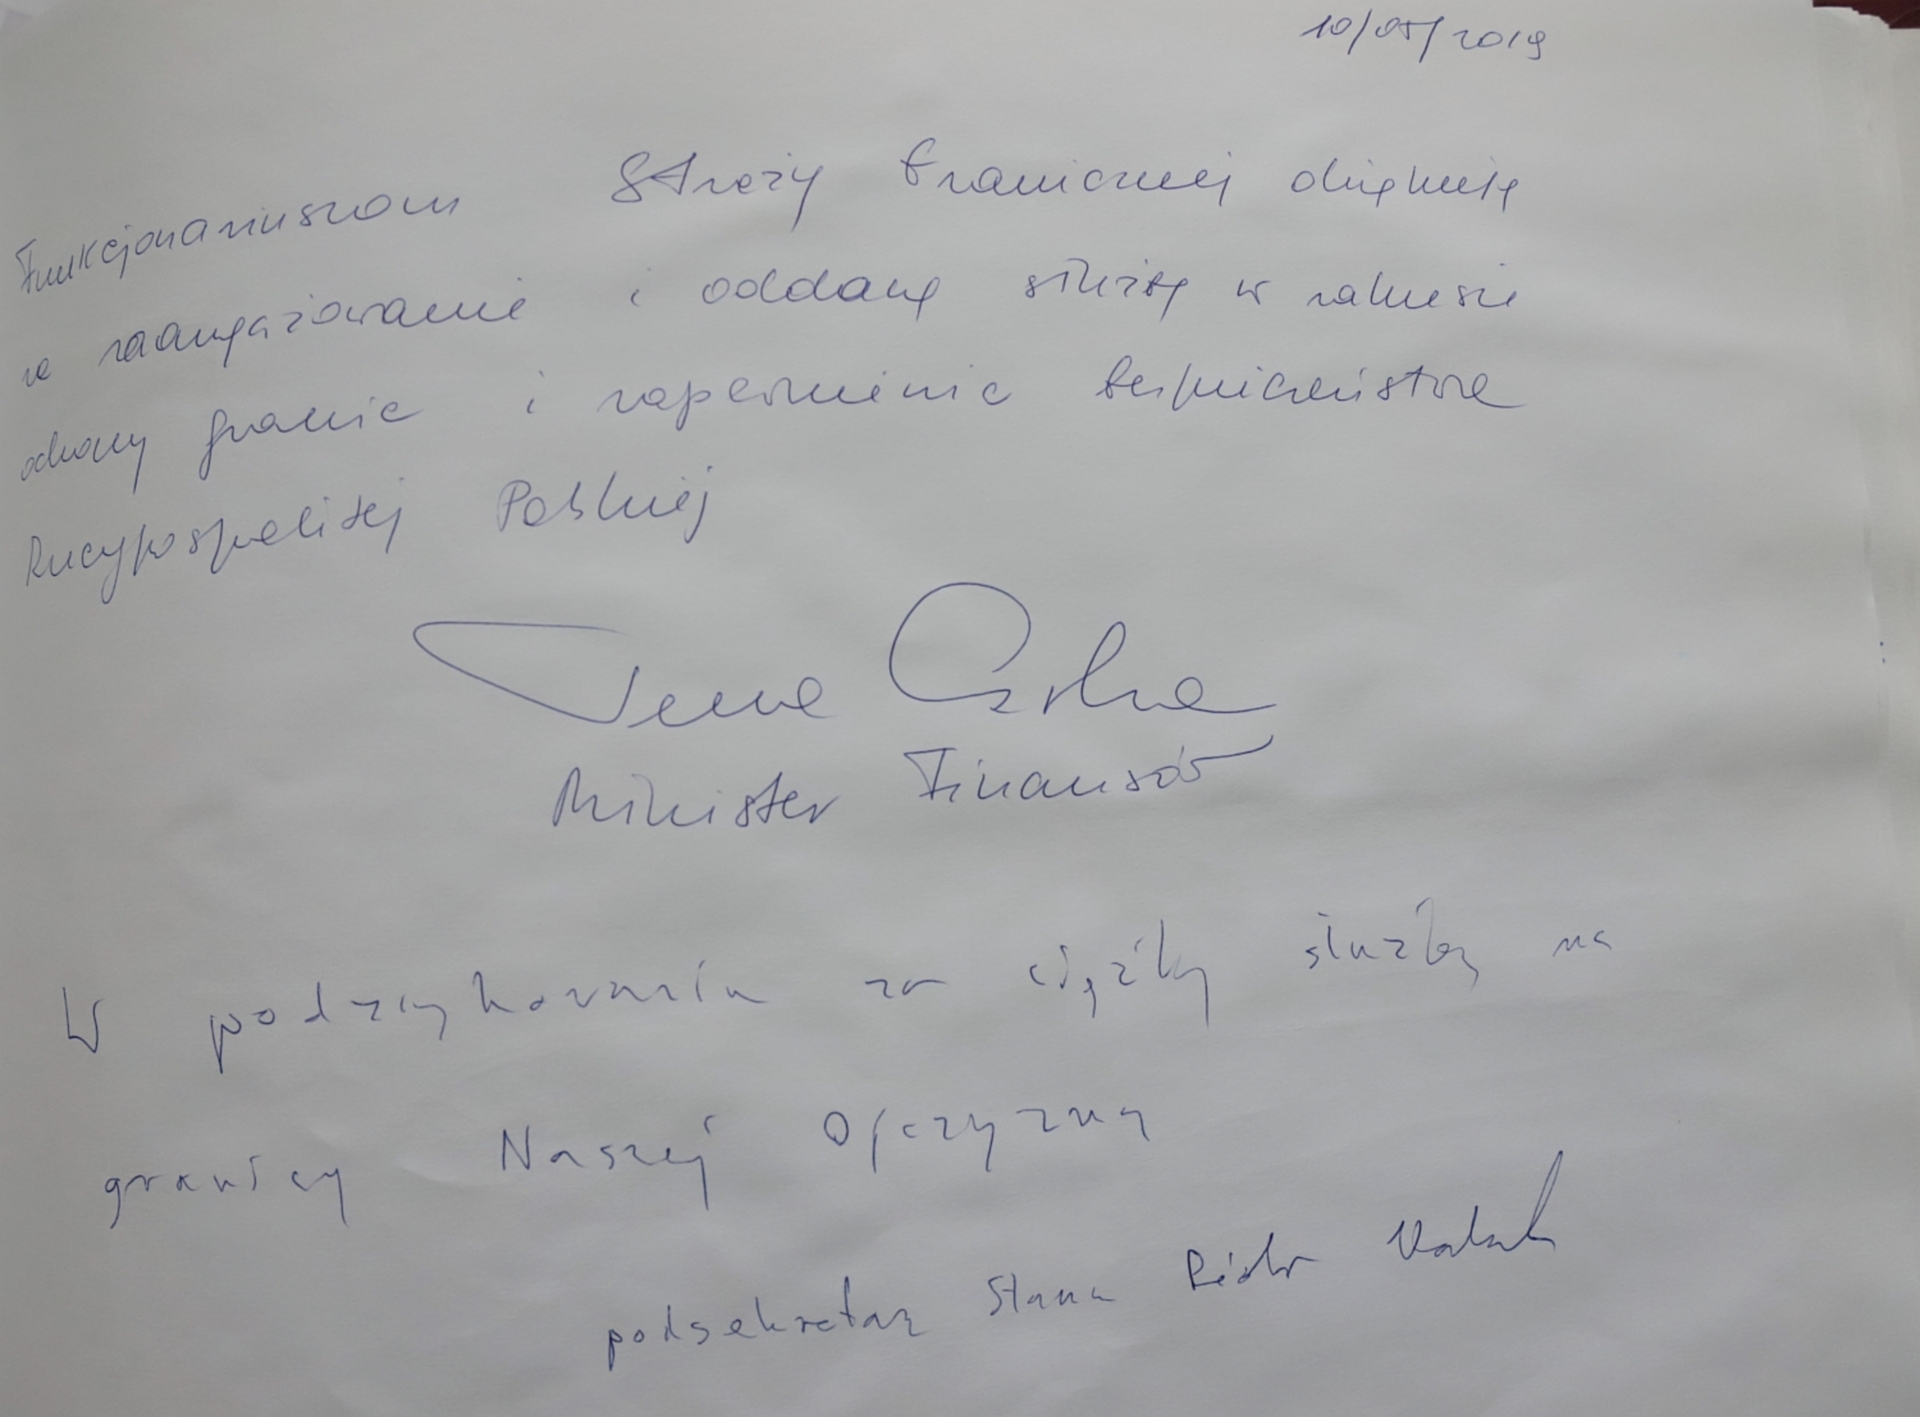 10/05/2019
Funkcjonariuszom Straży Granicznej dziękuję
za zaangażowanie i oddaną służbę w zakresie
ochrony granic i zapewnienia bezpieczeństwa
Rzeczypospolitej Polskiej
Teresa Czerwińska
Minister Finansów
W podziękowaniu za ciężką służbę na
granicy Naszej Ojczyzny
podsekretarz Stanu Piotr Walczak